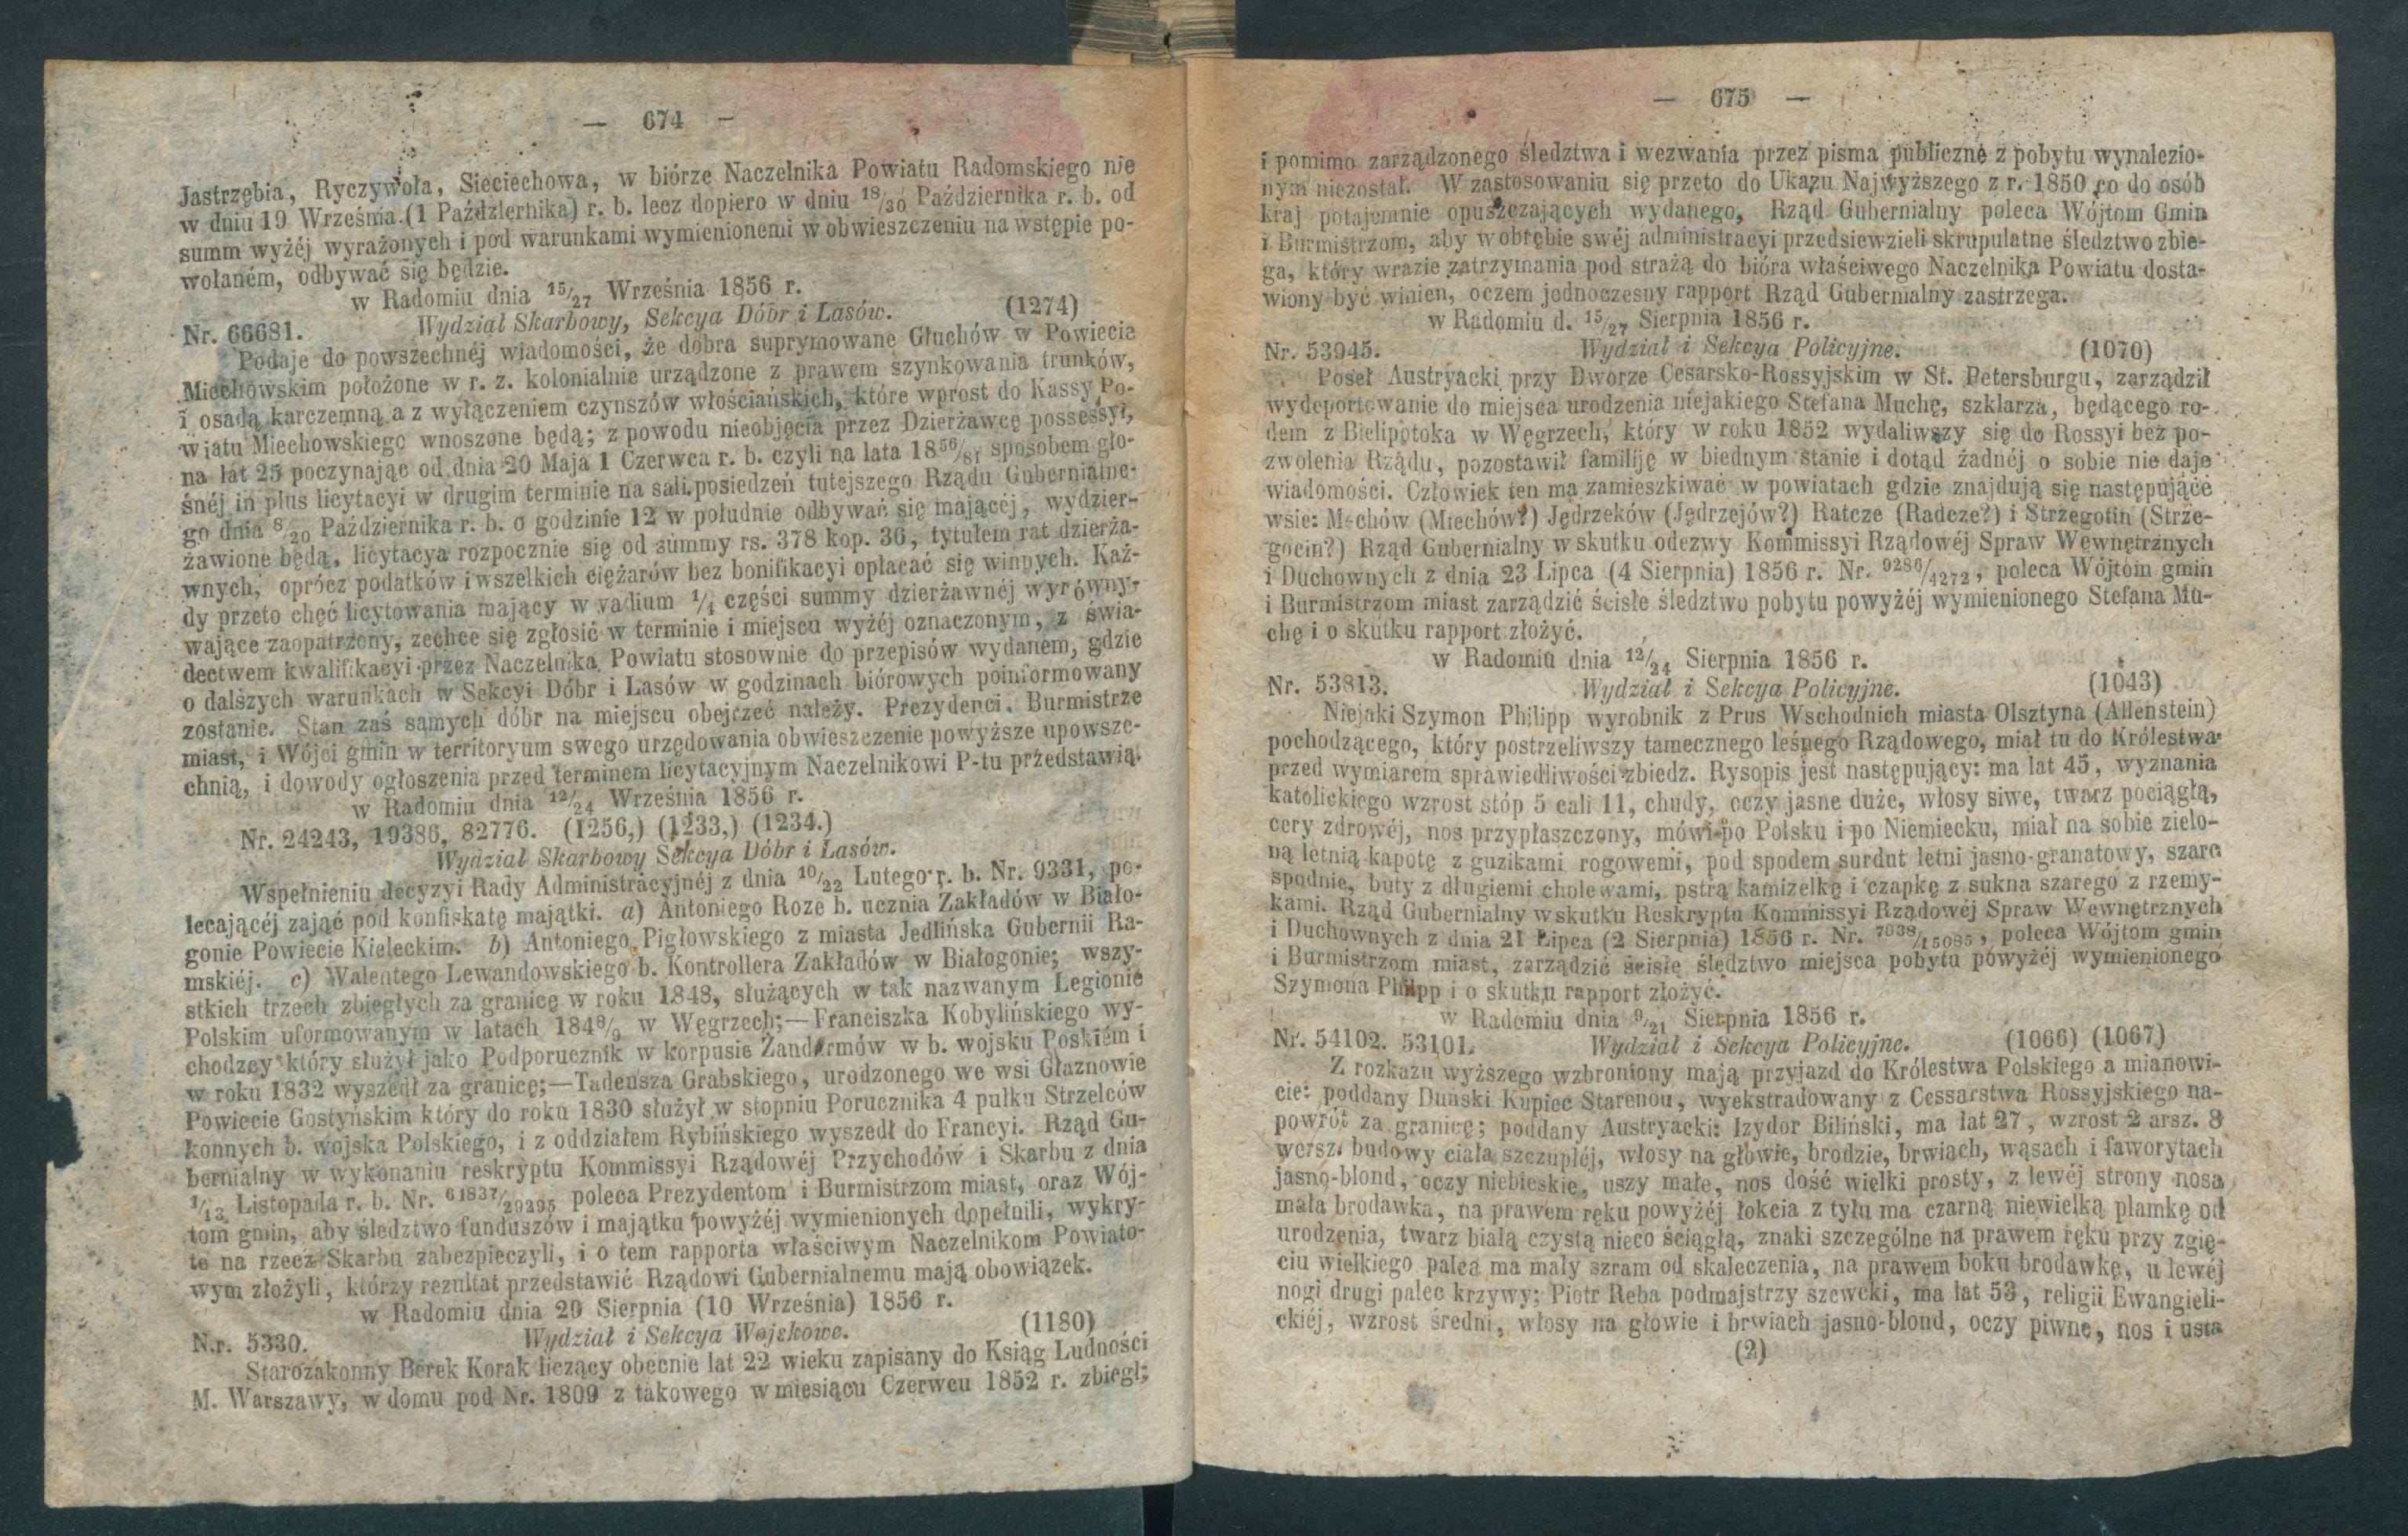 — 674 —
Jastrzębia, Ryczywoła, Sieciechowa, w biórze Naczelnika Powiatu Radomskiego nie
w dniu 19 Września (1 Października) r. b. lecz dopiero w dniu 18/30 Października r. b. od
summ wyżéj wyrażonych i pod warunkami wymienionemi w obwieszczeniu na wstępie po-
wołaném, odbywać się będzie.
w Radomiu dnia 15/27 Września 1856 r.
Nr. 66681. Wydział Skarbowy, Sekcya Dóbr i Lasów. (1274)
Podaje do powszechnéj wiadomości, że dobra suprymowane Głuchów w Powiecie
Miechowskim położone w r. z. kolonialnie urządzone z prawem szynkowania trunków,
i osadą karczemną a z wyłączeniem czynszów włościańskich, które wprost do Kassy Po-
wiatu Miechowskiego wnoszone będą; z powodu nieobjęcia przez Dzierżawcę possessyi,
na lat 25 poczynając od dnia 20 Maja 1 Czerwca r. b. czyli na lata 1856/81 sposobem gło-
śnéj in plus licytacyi w drugim terminie na sali posiedzeń tutejszego Rządu Gubernialne-
go dnia 8/20 Października r. b. o godzinie 12 w południe odbywać się mającéj, wydzier-
żawione będą, licytacya rozpocznie się od summy rs. 378 kop. 36, tytułem rat dzierża-
wnych, oprócz podatków i wszelkich ciężarów bez bonifikacyi opłacać się winnych. Każ-
dy przeto chęć licytowania mający w vadium 1/4 części summy dzierżawnéj wyrówny-
wające zaopatrzony, zechce się zgłosić w terminie i miejscu wyżéj oznaczonym, z świa-
dectwem kwalifikacyi przez Naczelnika Powiatu stosownie do przepisów wydanem, gdzie
o dalszych warunkach w Sekcyi Dóbr i Lasów w godzinach biórowych poinformowany
zostanie. Stan zaś samych dóbr na miejscu obejrzeć należy. Prezydenci, Burmistrze
miast, i Wójci gmin w territoryum swego urzędowania obwieszczenie powyższe upowsze-
chnią, i dowody ogłoszenia przed terminem licytacyjnym Naczelnikowi P-tu przedstawią.
w Radomiu dnia 12/24 Września 1856 r.
Nr. 24243, 19386, 82776. (1256,) (1233,) (1234.)
Wydział Skarbowy Sekcya Dóbr i Lasów.
Wspełnieniu decyzyi Rady Administracyjnéj z dnia 10/22 Lutego r. b. Nr. 9331, po-
lecającéj zająć pod konfiskatę majątki. a) Antoniego Roze b. ucznia Zakładów w Biało-
gonie Powiecie Kieleckim. b) Antoniego Pigłowskiego z miasta Jedlińska Gubernii Ra-
mskiéj. c) Walentego Lewandowskiego b. Kontrollera Zakładów w Białogonie; wszy-
stkich trzech zbiegłych za granicę w roku 1848, służących w tak nazwanym Legionie
Polskim uformowanym w latach 1848/9 w Węgrzech;—Franciszka Kobylińskiego wy-
chodzcy który służył jako Podporucznik w korpusie Żandarmów w b. wojsku Poskiém i
w roku 1832 wyszedł za granicę;—Tadeusza Grabskiego, urodzonego we wsi Głaznowie
Powiecie Gostyńskim który do roku 1830 służył w stopniu Porucznika 4 pułku Strzelców
konnych b. wojska Polskiego, i z oddziałem Rybińskiego wyszedł do Francyi. Rząd Gu-
bernialny w wykonaniu reskryptu Kommissyi Rządowéj Przychodów i Skarbu z dnia
1/13 Listopada r. b. Nr. 61837/29295 poleca Prezydentom i Burmistrzom miast, oraz Wój-
tom gmin, aby śledztwo funduszów i majątku powyżéj wymienionych dopełnili, wykry-
te na rzecz Skarbu zabezpieczyli, i o tem rapporta właściwym Naczelnikom Powiato-
wym złożyli, którzy rezultat przedstawić Rządowi Gubernialnemu mają obowiązek.
w Radomiu dnia 29 Sierpnia (10 Września) 1856 r.
N.r. 5330. Wydział i Sekcya Wojskowe. (1180)
Starozakonny Berek Korak liczący obecnie lat 22 wieku zapisany do Ksiąg Ludności
M. Warszawy, w domu pod Nr. 1809 z takowego w miesiącu Czerwcu 1852 r. zbiegł;
— 675 —
i pomimo zarządzonego śledztwa i wezwania przez pisma publiczne z pobytu wynalezio-
nym niezostał. W zastosowaniu się przeto do Ukazu Najwyższego z r. 1850 co do osób
kraj potajemnie opuszczających wydanego, Rząd Gubernialny poleca Wójtom Gmin
i Burmistrzom, aby w obrębie swéj administracyi przedsiewzieli skrupulatne śledztwo zbie-
ga, który wrazie zatrzymania pod strażą do bióra właściwego Naczelnika Powiatu dosta-
wiony być winien, oczem jednoczesny rapport Rząd Gubernialny zastrzega.
w Radomiu d. 15/27 Sierpnia 1856 r.
Nr. 53945. Wydział i Sekcya Policyjne. (1070)
Poseł Austryacki przy Dworze Cesarsko-Rossyjskim w St. Petersburgu, zarządził
wydeportowanie do miejsca urodzenia niejakiego Stefana Muchę, szklarza, będącego ro-
dem z Bielipotoka w Węgrzech, który w roku 1852 wydaliwszy się do Rossyi bez po-
zwolenia Rządu, pozostawił familiję w biednym stanie i dotąd żadnéj o sobie nie daje
wiadomości. Człowiek ten ma zamieszkiwać w powiatach gdzie znajdują się następujące
wsie: Mechów (Miechów?) Jędrzeków (Jędrzejów?) Ratcze (Radcze?) i Strzegotin (Strze-
gocin?) Rząd Gubernialny w skutku odezwy Kommissyi Rządowéj Spraw Wewnętrznych
i Duchownych z dnia 23 Lipca (4 Sierpnia) 1856 r. Nr. 9286/4272, poleca Wójtom gmin
i Burmistrzom miast zarządzić ścisłe śledztwo pobytu powyżéj wymienionego Stefana Mu-
chę i o skutku rapport złożyć.
w Radomiu dnia 12/24 Sierpnia 1856 r.
Nr. 53813. Wydział i Sekcya Policyjne. (1043)
Niejaki Szymon Philipp wyrobnik z Prus Wschodnich miasta Olsztyna (Allenstein)
pochodzącego, który postrzeliwszy tamecznego leśnego Rządowego, miał tu do Królestwa
przed wymiarem sprawiedliwości zbiedz. Rysopis jest następujący: ma lat 45, wyznania
katolickiego wzrost stóp 5 cali 11, chudy, oczy jasne duże, włosy siwe, twarz pociągłą,
cery zdrowéj, nos przypłaszczony, mówi po Polsku i po Niemiecku, miał na sobie zielo-
ną letnią kapotę z guzikami rogowemi, pod spodem surdut letni jasno-granatowy, szare
spodnie, buty z długiemi cholewami, pstrą kamizelkę i czapkę z sukna szarego z rzemy-
kami. Rząd Gubernialny w skutku Reskryptu Kommissyi Rządowéj Spraw Wewnętrznych
i Duchownych z dnia 21 Lipca (2 Sierpnia) 1856 r. Nr. 7038/15085, poleca Wójtom gmin
i Burmistrzom miast, zarządzić ścisłe śledztwo miejsca pobytu powyżéj wymienionego
Szymona Philipp i o skutku rapport złożyć.
w Radomiu dnia 9/21 Sierpnia 1856 r.
Nr. 54102. 53101. Wydział i Sekcya Policyjne. (1066) (1067)
Z rozkazu wyższego wzbroniony mają przyjazd do Królestwa Polskiego a mianowi-
cie: poddany Duński Kupiec Starenou, wyekstradowany z Cessarstwa Rossyjskiego na-
powrót za granicę; poddany Austryacki: Izydor Biliński, ma lat 27, wzrost 2 arsz. 8
wersz. budowy ciała szczupłéj, włosy na głowie, brodzie, brwiach, wąsach i faworytach
jasno-blond, oczy niebieskie, uszy małe, nos dość wielki prosty, z lewéj strony nosa
mała brodawka, na prawem ręku powyżéj łokcia z tyłu ma czarną niewielką plamkę od
urodzenia, twarz białą czystą nieco ściągłą, znaki szczególne na prawem ręku przy zgię-
ciu wielkiego palca ma mały szram od skaleczenia, na prawem boku brodawkę, u lewéj
nogi drugi palec krzywy; Piotr Reba podmajstrzy szewcki, ma lat 53, religii Ewangieli-
ckiéj, wzrost średni, włosy na głowie i brwiach jasno-blond, oczy piwne, nos i usta
(2)